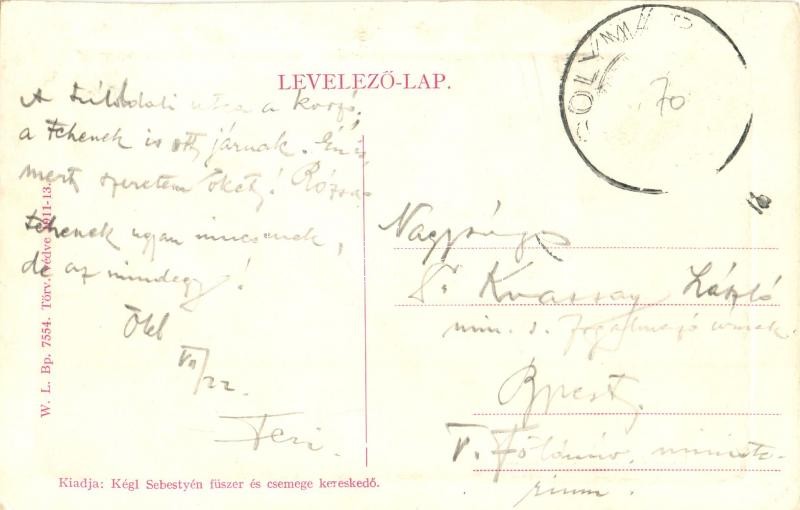 LEVELEZŐ-LAP.
A utca a korzó,
a tehenek is ott járnak. Én is,
mert szeretem őket! Rózsa-
tehenek ugyan nincsenek,
de az mindegy!
Ölel
VII/22.
Feri.
W. L. Bp. 7554. Törv. védve 1911-13.
Kiadja: Kégl Sebestyén füszer és csemege kereskedő.
SOLYMÁR
70
Nagyságos
Dr. Kvassay László
min. s. fogalmazó urnak.
Bpest.
V. Földmüv. miniszte-
rium.